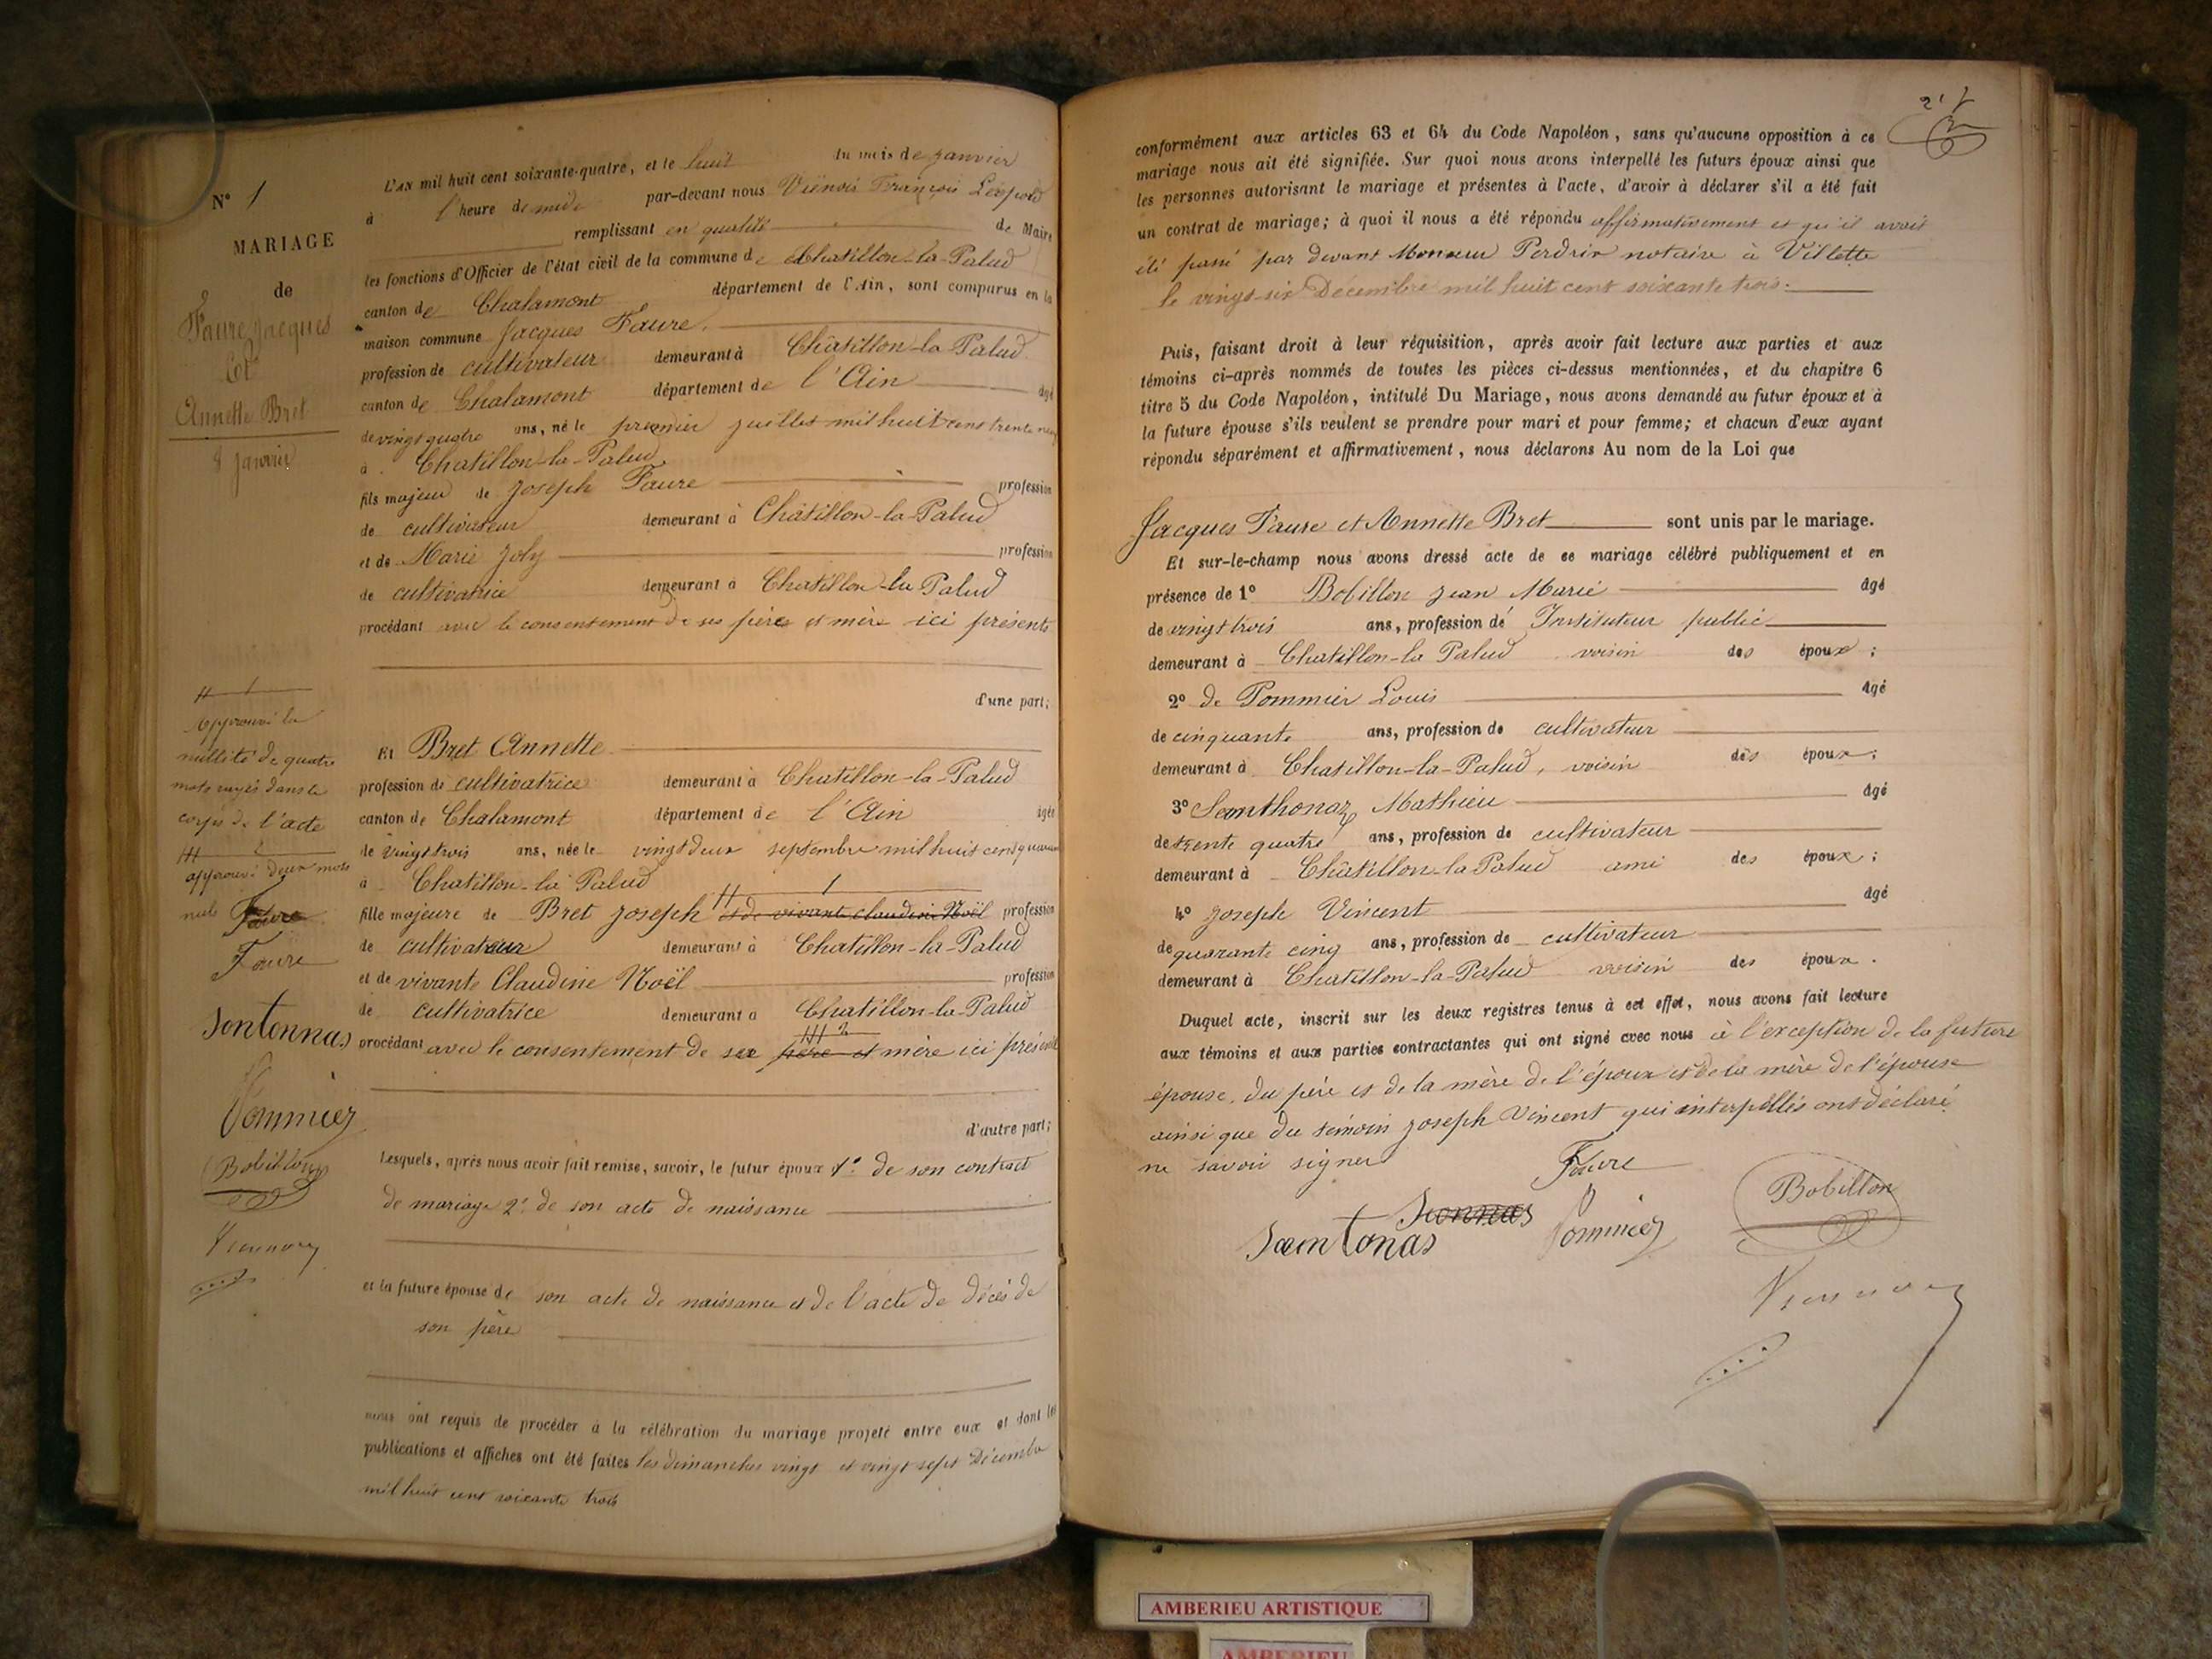 N° 1
MARIAGE
de
Faure Jacques
Et
Annette Bret
8 janvier
L'AN mil huit cent soixante-quatre, et le huit du mois de janvier
à l'heure de midi par-devant nous Viénois François Léopold
remplissant en qualité de Maire
les fonctions d'Officier de l'état civil de la commune de Chatillon-la-Palud
canton de Chalamont département de l'Ain, sont comparus en la
maison commune Jacques Faure.
profession de cultivateur demeurant à Châtillon-la-Palud
canton de Chalamont département de l'Ain âgé
de vingt quatre ans, né le premier juillet mil huit cent trente neuf
à Chatillon-la-Palud
fils majeur de Joseph Faure profession
de cultivateur demeurant à Châtillon-la-Palud
et de Marie Joly profession
de cultivatrice demeurant à Chatillon-la Palud
procédant avec le consentement de ses père et mère ici présents
d'une part;
Et Bret Annette
profession de cultivatrice demeurant à Chatillon-la-Palud
canton de Chalamont département de l'Ain âgée
de vingt trois ans, née le vingt deux septembre mil huit cent quarante
à Chatillon-la Palud
fille majeure de Bret Joseph et de vivante Claudine Noël profession
de cultivateur demeurant à Chatillon-la-Palud
et de vivante Claudine Noël profession
de cultivatrice demeurant à Chatillon-la-Palud
procédant avec le consentement de sa père et mère ici présente
d'autre part;
Lesquels, après nous avoir fait remise, savoir, le futur époux 1° de son contract
de mariage 2° de son acte de naissance
et la future épouse de son acte de naissance et de l'acte de décès de
son père
nous ont requis de procéder à la célébration du mariage projeté entre eux et dont les
publications et affiches ont été faites les dimanches vingt et vingt sept Décembre
mil huit cent soixante trois
1
Approuvé la
nullité de quatre
mots rayés dans le
corps de l'acte
2
approuvé deux mots
nuls Faure
Faure
Sontonnas
Pommier
Bobillon
conformément aux articles 63 et 64 du Code Napoléon, sans qu'aucune opposition à ce
mariage nous ait été signifiée. Sur quoi nous avons interpellé les futurs époux ainsi que
les personnes autorisant le mariage et présentes à l'acte, d'avoir à déclarer s'il a été fait
un contrat de mariage; à quoi il nous a été répondu affirmativement et qu'il avait
été passé par devant Monsieur Perdrix notaire à Villette
le vingt-six Décembre mil huit cent soixante trois.
Puis, faisant droit à leur réquisition, après avoir fait lecture aux parties et aux
témoins ci-après nommés de toutes les pièces ci-dessus mentionnées, et du chapitre 6
titre 5 du Code Napoléon, intitulé Du Mariage, nous avons demandé au futur époux et à
la future épouse s'ils veulent se prendre pour mari et pour femme; et chacun d'eux ayant
répondu séparément et affirmativement, nous déclarons Au nom de la Loi que
Jacques Faure et Annette Bret sont unis par le mariage.
Et sur-le-champ nous avons dressé acte de ce mariage célébré publiquement et en
présence de 1° Bobillon Jean Marie âgé
de vingt trois ans, profession de Instituteur public
demeurant à Chatillon-la Palud voisin des époux;
2° de Pommier Louis âgé
de cinquante ans, profession de cultivateur
demeurant à Chatillon-la-Palud, voisin des époux;
3° Senthonaz Mathieu âgé
de trente quatre ans, profession de cultivateur
demeurant à Châtillon-la Palud ami des époux;
4° Joseph Vincent âgé
de quarante cinq ans, profession de cultivateur
demeurant à Chatillon-la-Palud voisin des époux.
Duquel acte, inscrit sur les deux registres tenus à cet effet, nous avons fait lecture
aux témoins et aux parties contractantes qui ont signé avec nous à l'exception de la future
épouse, du père et de la mère de l'époux et de la mère de l'épouse
ainsi que du témoin Joseph Vincent qui interpellés ont déclaré
ne savoir signer
Faure
Bobillon
Pommier
Saintonas
AMBERIEU ARTISTIQUE
AMBERIEU